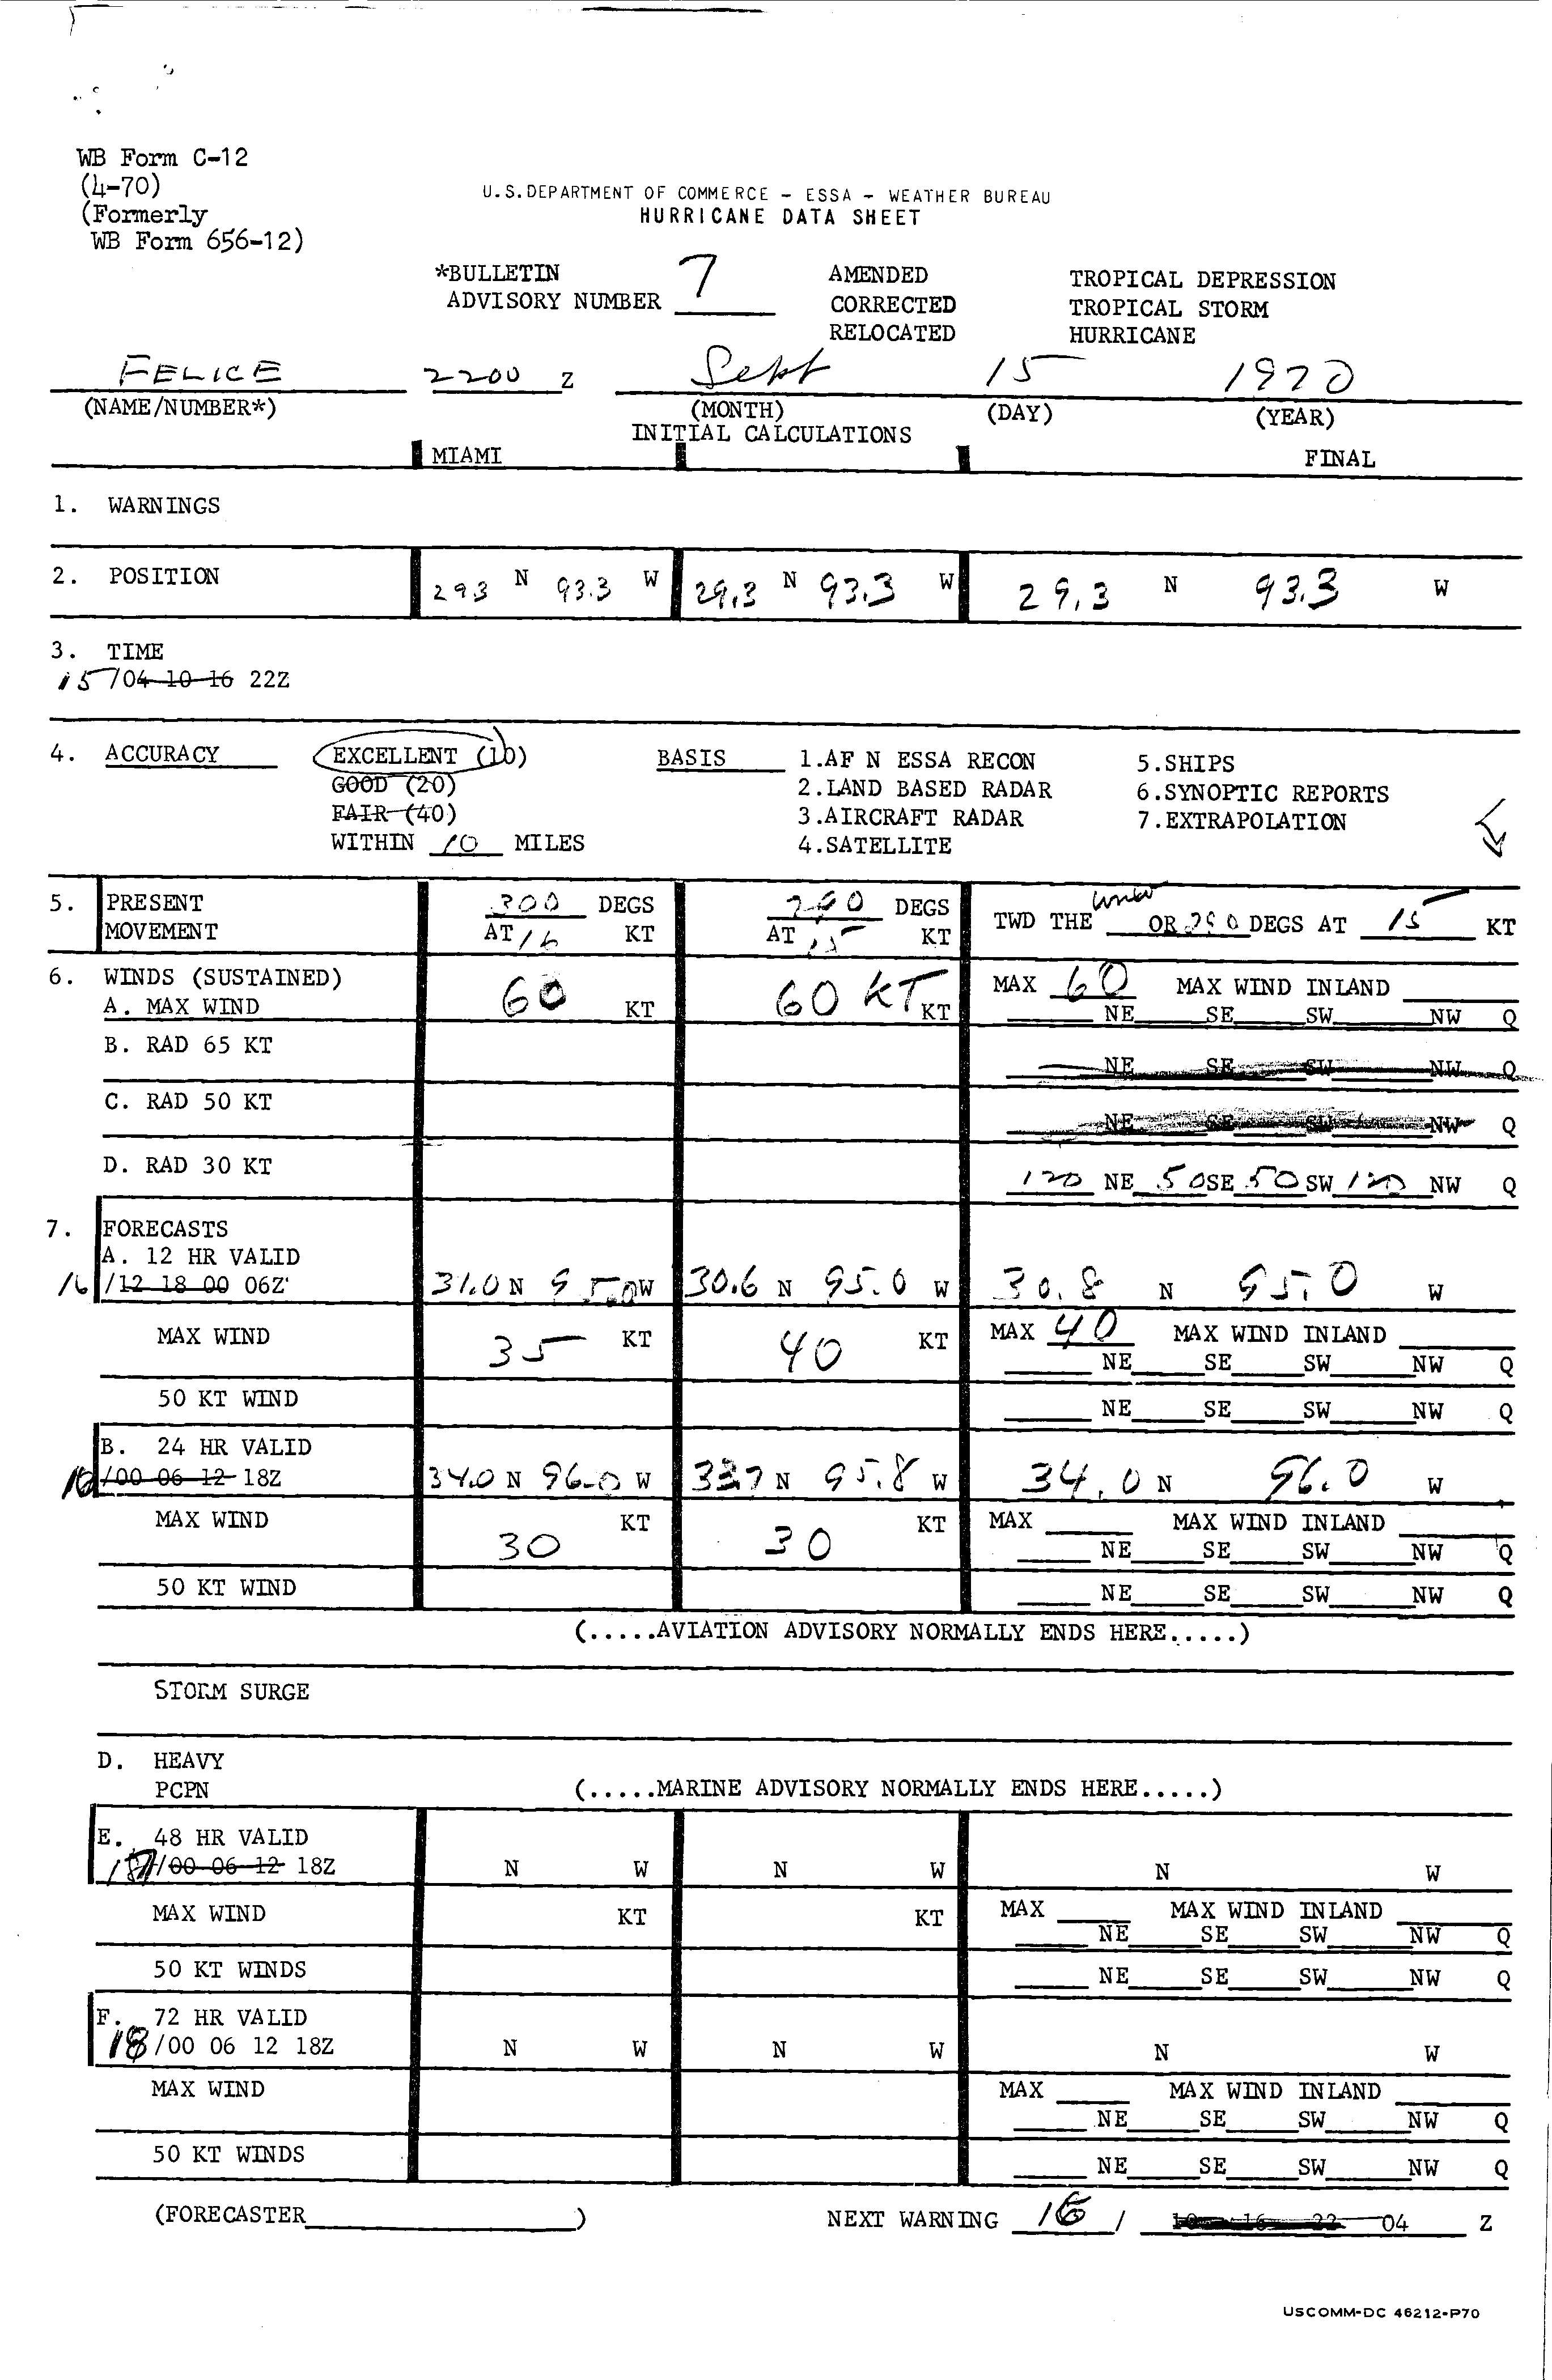 WB Form C-12
(4-70)
(Formerly
WB Form 656-12)
U.S. DEPARTMENT OF COMMERCE - ESSA - WEATHER BUREAU
HURRICANE DATA SHEET
*BULLETIN
ADVISORY NUMBER 7
AMENDED
CORRECTED
RELOCATED
TROPICAL DEPRESSION
TROPICAL STORM
HURRICANE
FELICE 2200 Z Sept 15 1970
(NAME/NUMBER*) (MONTH) (DAY) (YEAR)
INITIAL CALCULATIONS
MIAMI FINAL
1. WARNINGS
2. POSITION 293 N 93.3 W 29.3 N 93.3 W 29.3 N 93.3 W
3. TIME
15/04 10 16 22Z
4. ACCURACY EXCELLENT (10) BASIS 1.AF N ESSA RECON 5.SHIPS
GOOD (20) 2.LAND BASED RADAR 6.SYNOPTIC REPORTS
FAIR (40) 3.AIRCRAFT RADAR 7.EXTRAPOLATION
WITHIN 10 MILES 4.SATELLITE
5. PRESENT 300 DEGS 290 DEGS
MOVEMENT AT 16 KT AT 15 KT TWD THE WNW OR 290 DEGS AT 15 KT
6. WINDS (SUSTAINED)
A. MAX WIND 60 KT 60 KT KT MAX 60 MAX WIND INLAND
NE SE SW NW Q
B. RAD 65 KT NE SE SW NW Q
C. RAD 50 KT NE SE SW NW Q
D. RAD 30 KT 120 NE 50 SE 50 SW 120 NW Q
7. FORECASTS
A. 12 HR VALID
16/12 18 00 06Z 31.0 N 95.0 W 30.6 N 95.0 W 30.8 N 95.0 W
MAX WIND 35 KT 40 KT MAX 40 MAX WIND INLAND
NE SE SW NW Q
50 KT WIND NE SE SW NW Q
B. 24 HR VALID
16/00 06 12 18Z 34.0 N 96.0 W 33.7 N 95.8 W 34.0 N 96.0 W
MAX WIND 30 KT 30 KT MAX MAX WIND INLAND
NE SE SW NW Q
50 KT WIND NE SE SW NW Q
(.....AVIATION ADVISORY NORMALLY ENDS HERE.....)
STORM SURGE
D. HEAVY
PCPN (.....MARINE ADVISORY NORMALLY ENDS HERE.....)
E. 48 HR VALID
17/00 06 12 18Z N W N W N W
MAX WIND KT KT MAX MAX WIND INLAND
NE SE SW NW Q
50 KT WINDS NE SE SW NW Q
F. 72 HR VALID
18/00 06 12 18Z N W N W N W
MAX WIND MAX MAX WIND INLAND
NE SE SW NW Q
50 KT WINDS NE SE SW NW Q
(FORECASTER ) NEXT WARNING 16 / 10 16 22 04 Z
USCOMM-DC 46212-P70